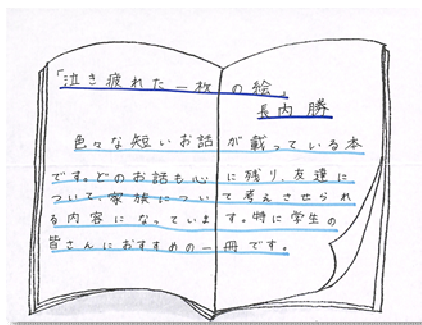 「泣き疲れた一枚の絵」
長内 勝
色々な短いお話が載っている本
です。どのお話も心に残り、友達に
ついて、家族について考えさせられ
る内容になっています。特に学生の
皆さんにおすすめの一冊です。